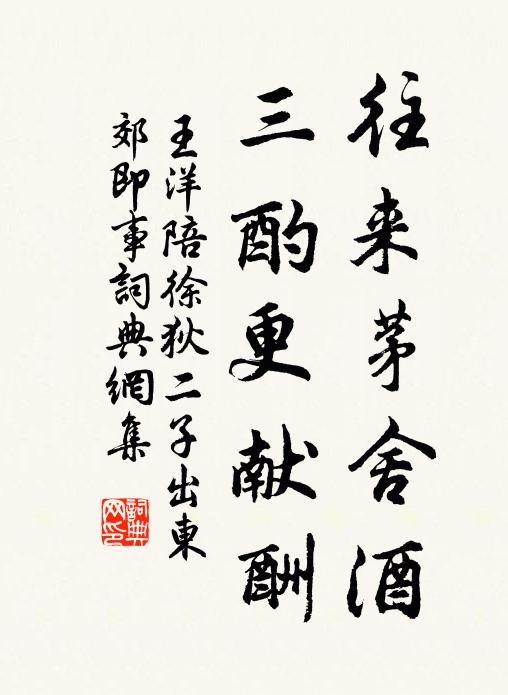 往来茅舍酒
三酌更献酬
王洋陪徐狄二子出東
郊即事詞典網集
詞典
网印